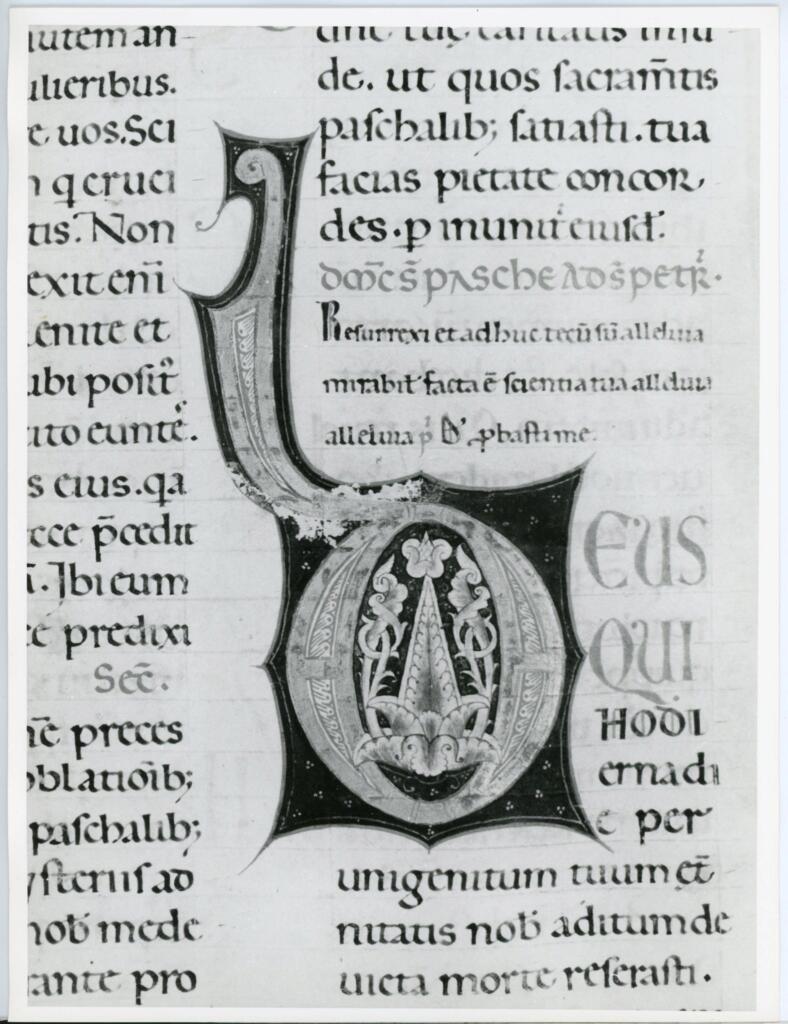 autem an
ulieribus.
e uos. Sci
q cruci
tis. Non
exit eni̅
enite et
ubi posit
ito eunte̅.
s eius. qa
ecce p̅cedit
Ibi eum
predixi
Sec̅.
preces
oblatio̅ib;
paschalib;
ysteriis ad
nob̅ mede
rante pro
de. ut quos sacram̅tis
paschalib; satiasti. tua
facias pietate concor,
des. p
Resurrexi et adhuc tecu̅ su̅ alleluia
mirabil̅ facta e̅ scientia tua alleluia
alleluia
EUS
QUI
HODI
erna di
e per
unigenitum tuum et̅
nitatis nob̅ aditum de
uicta morte reserasti.